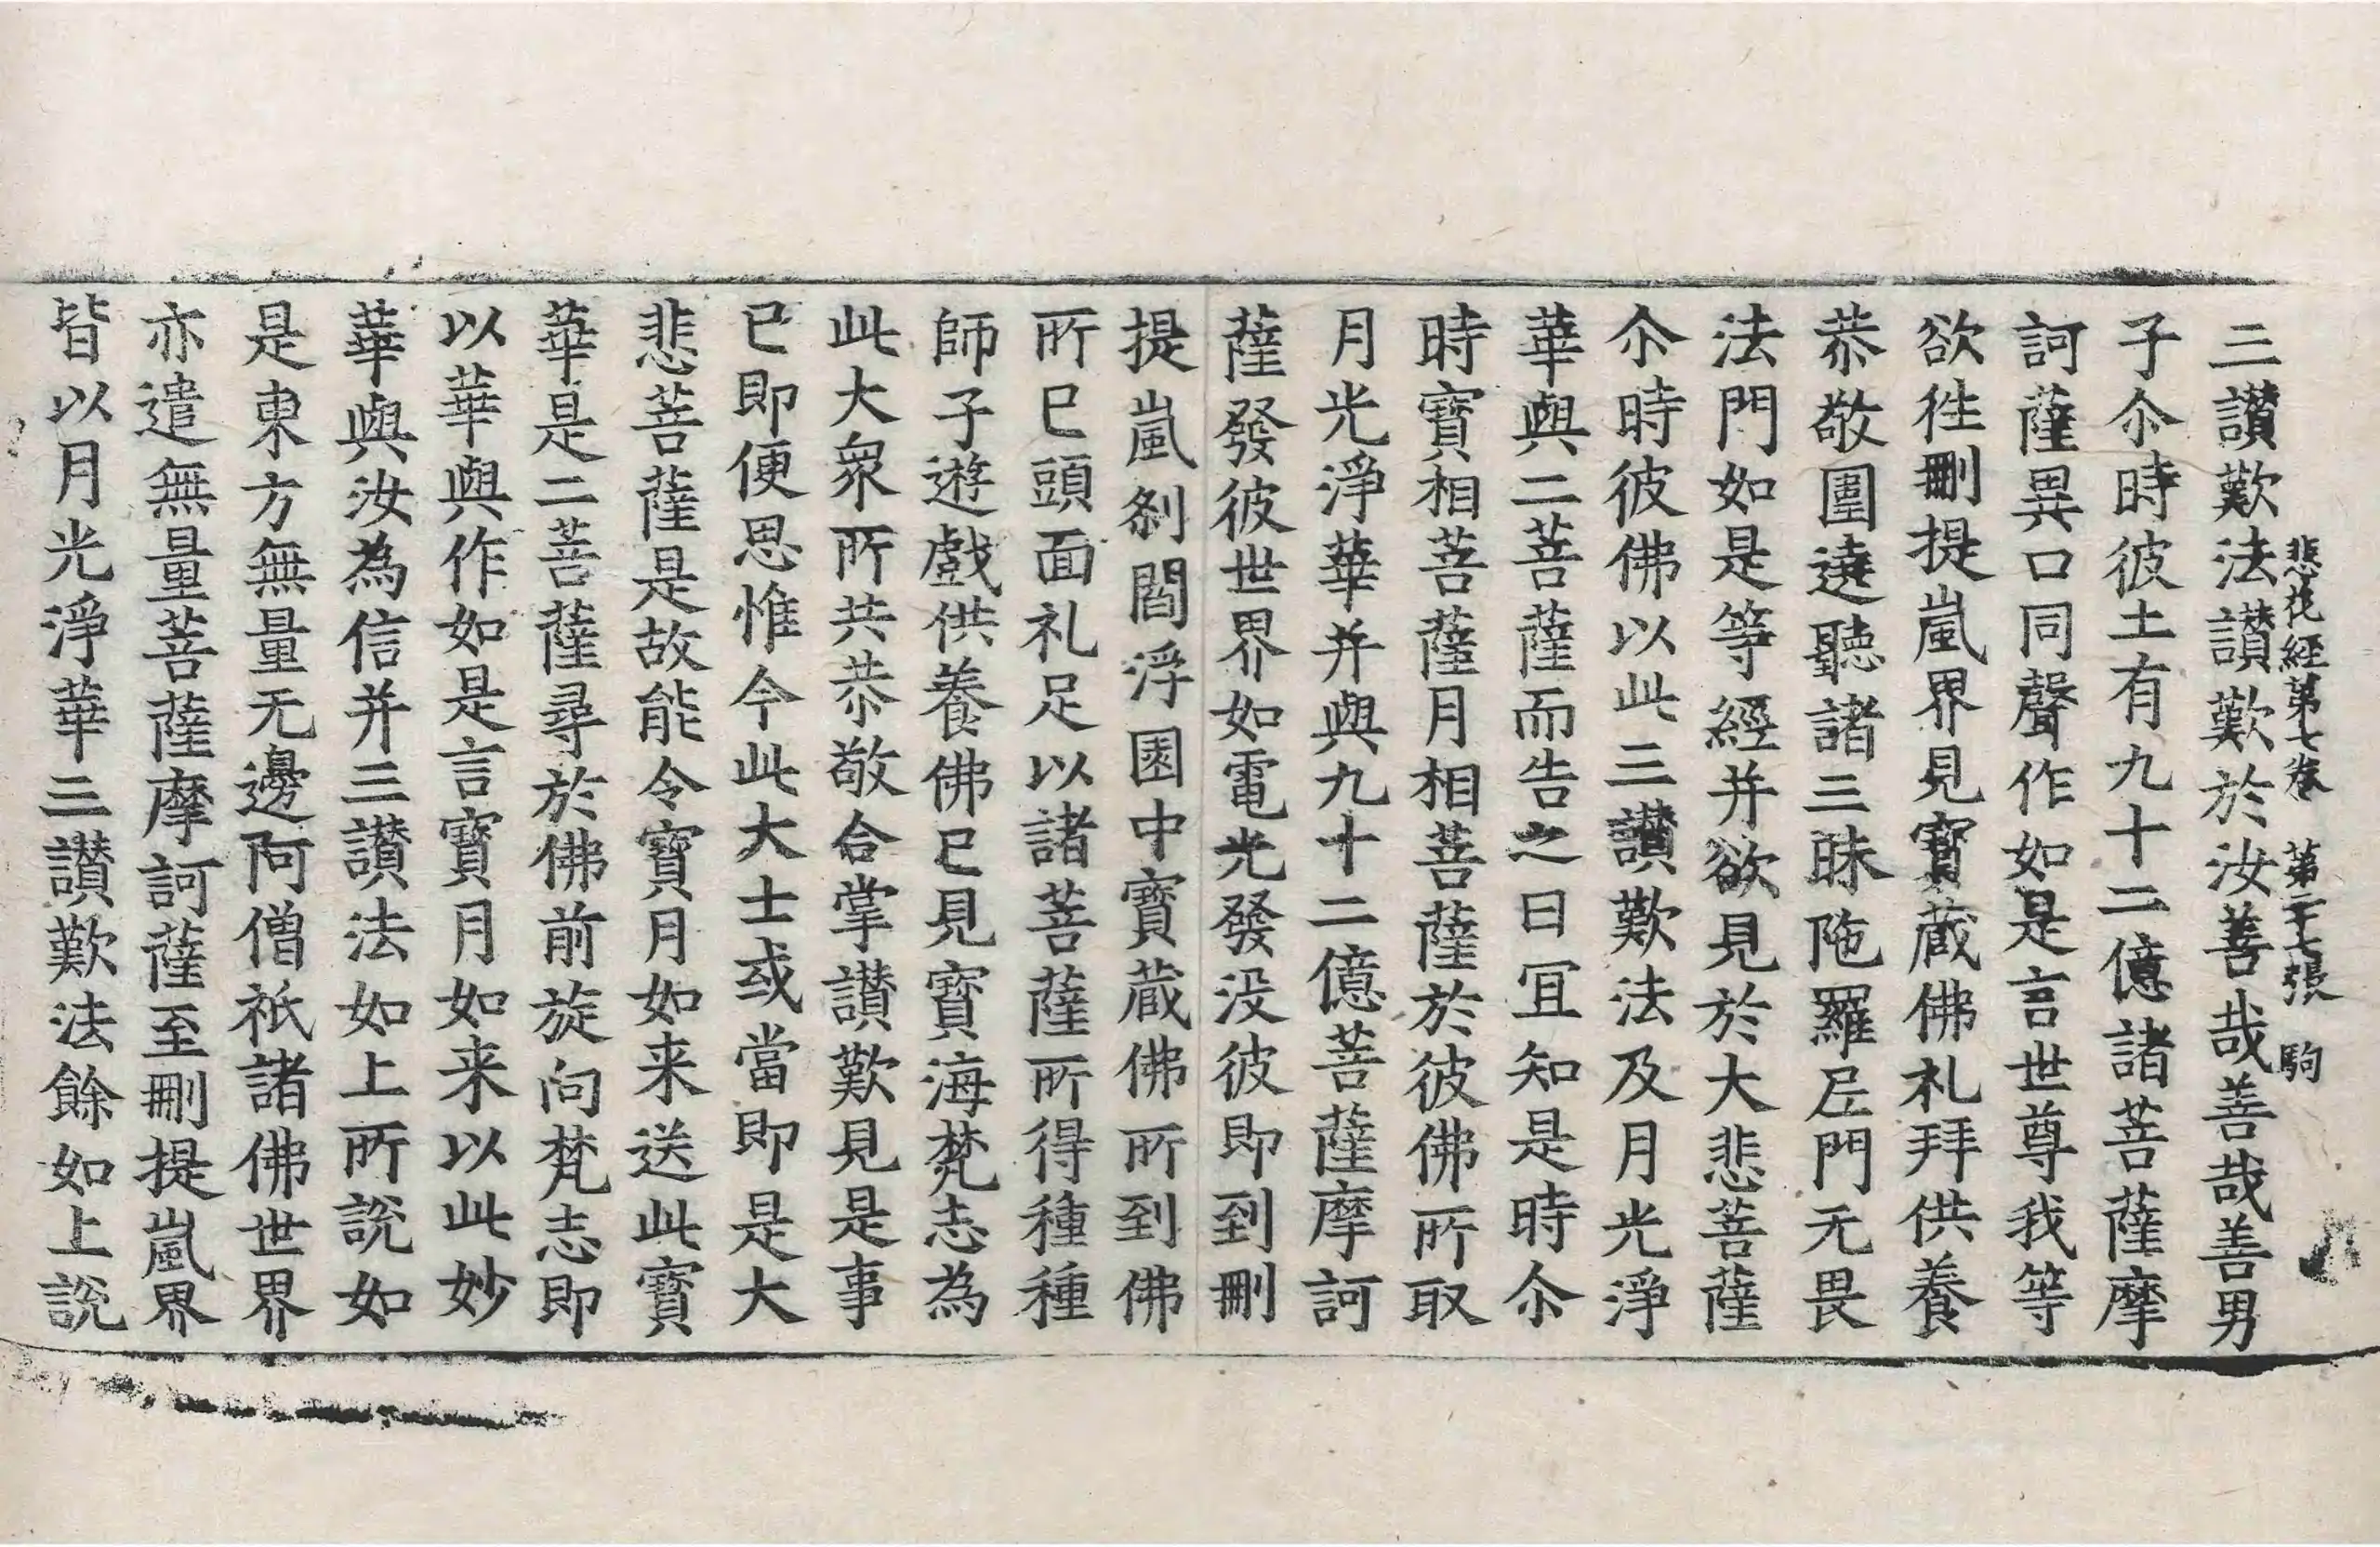 悲花經第七卷　第二十七張　駒
三讃歎法讃歎於汝善哉善哉善男
子尒時彼土有九十二億諸菩薩摩
訶薩異口同聲作如是言世尊我等
欲徃刪提嵐界見寶蔵佛礼拜供養
恭敬圍遶聽諸三昧陁羅尼門无畏
法門如是等經并欲見於大悲菩薩
尒時彼佛以此三讃歎法及月光淨
華與二菩薩而告之曰宜知是時尒
時寶相菩薩月相菩薩於彼佛所取
月光淨華并與九十二億菩薩摩訶
薩發彼世界如電光發没彼即到刪
提嵐刹閻浮園中寶蔵佛所到佛
所已頭面礼足以諸菩薩所得種種
師子遊戲供養佛已見寶海梵志為
此大衆所共恭敬合掌讃歎見是事
已即便思惟今此大士或當即是大
悲菩薩是故能令寶月如来送此寶
華是二菩薩尋於佛前旋向梵志即
以華與作如是言寶月如来以此妙
華與汝為信并三讃法如上所說如
是東方無量无邊阿僧祇諸佛世界
亦遣無量菩薩摩訶薩至刪提嵐界
皆以月光淨華三讃歎法餘如上說